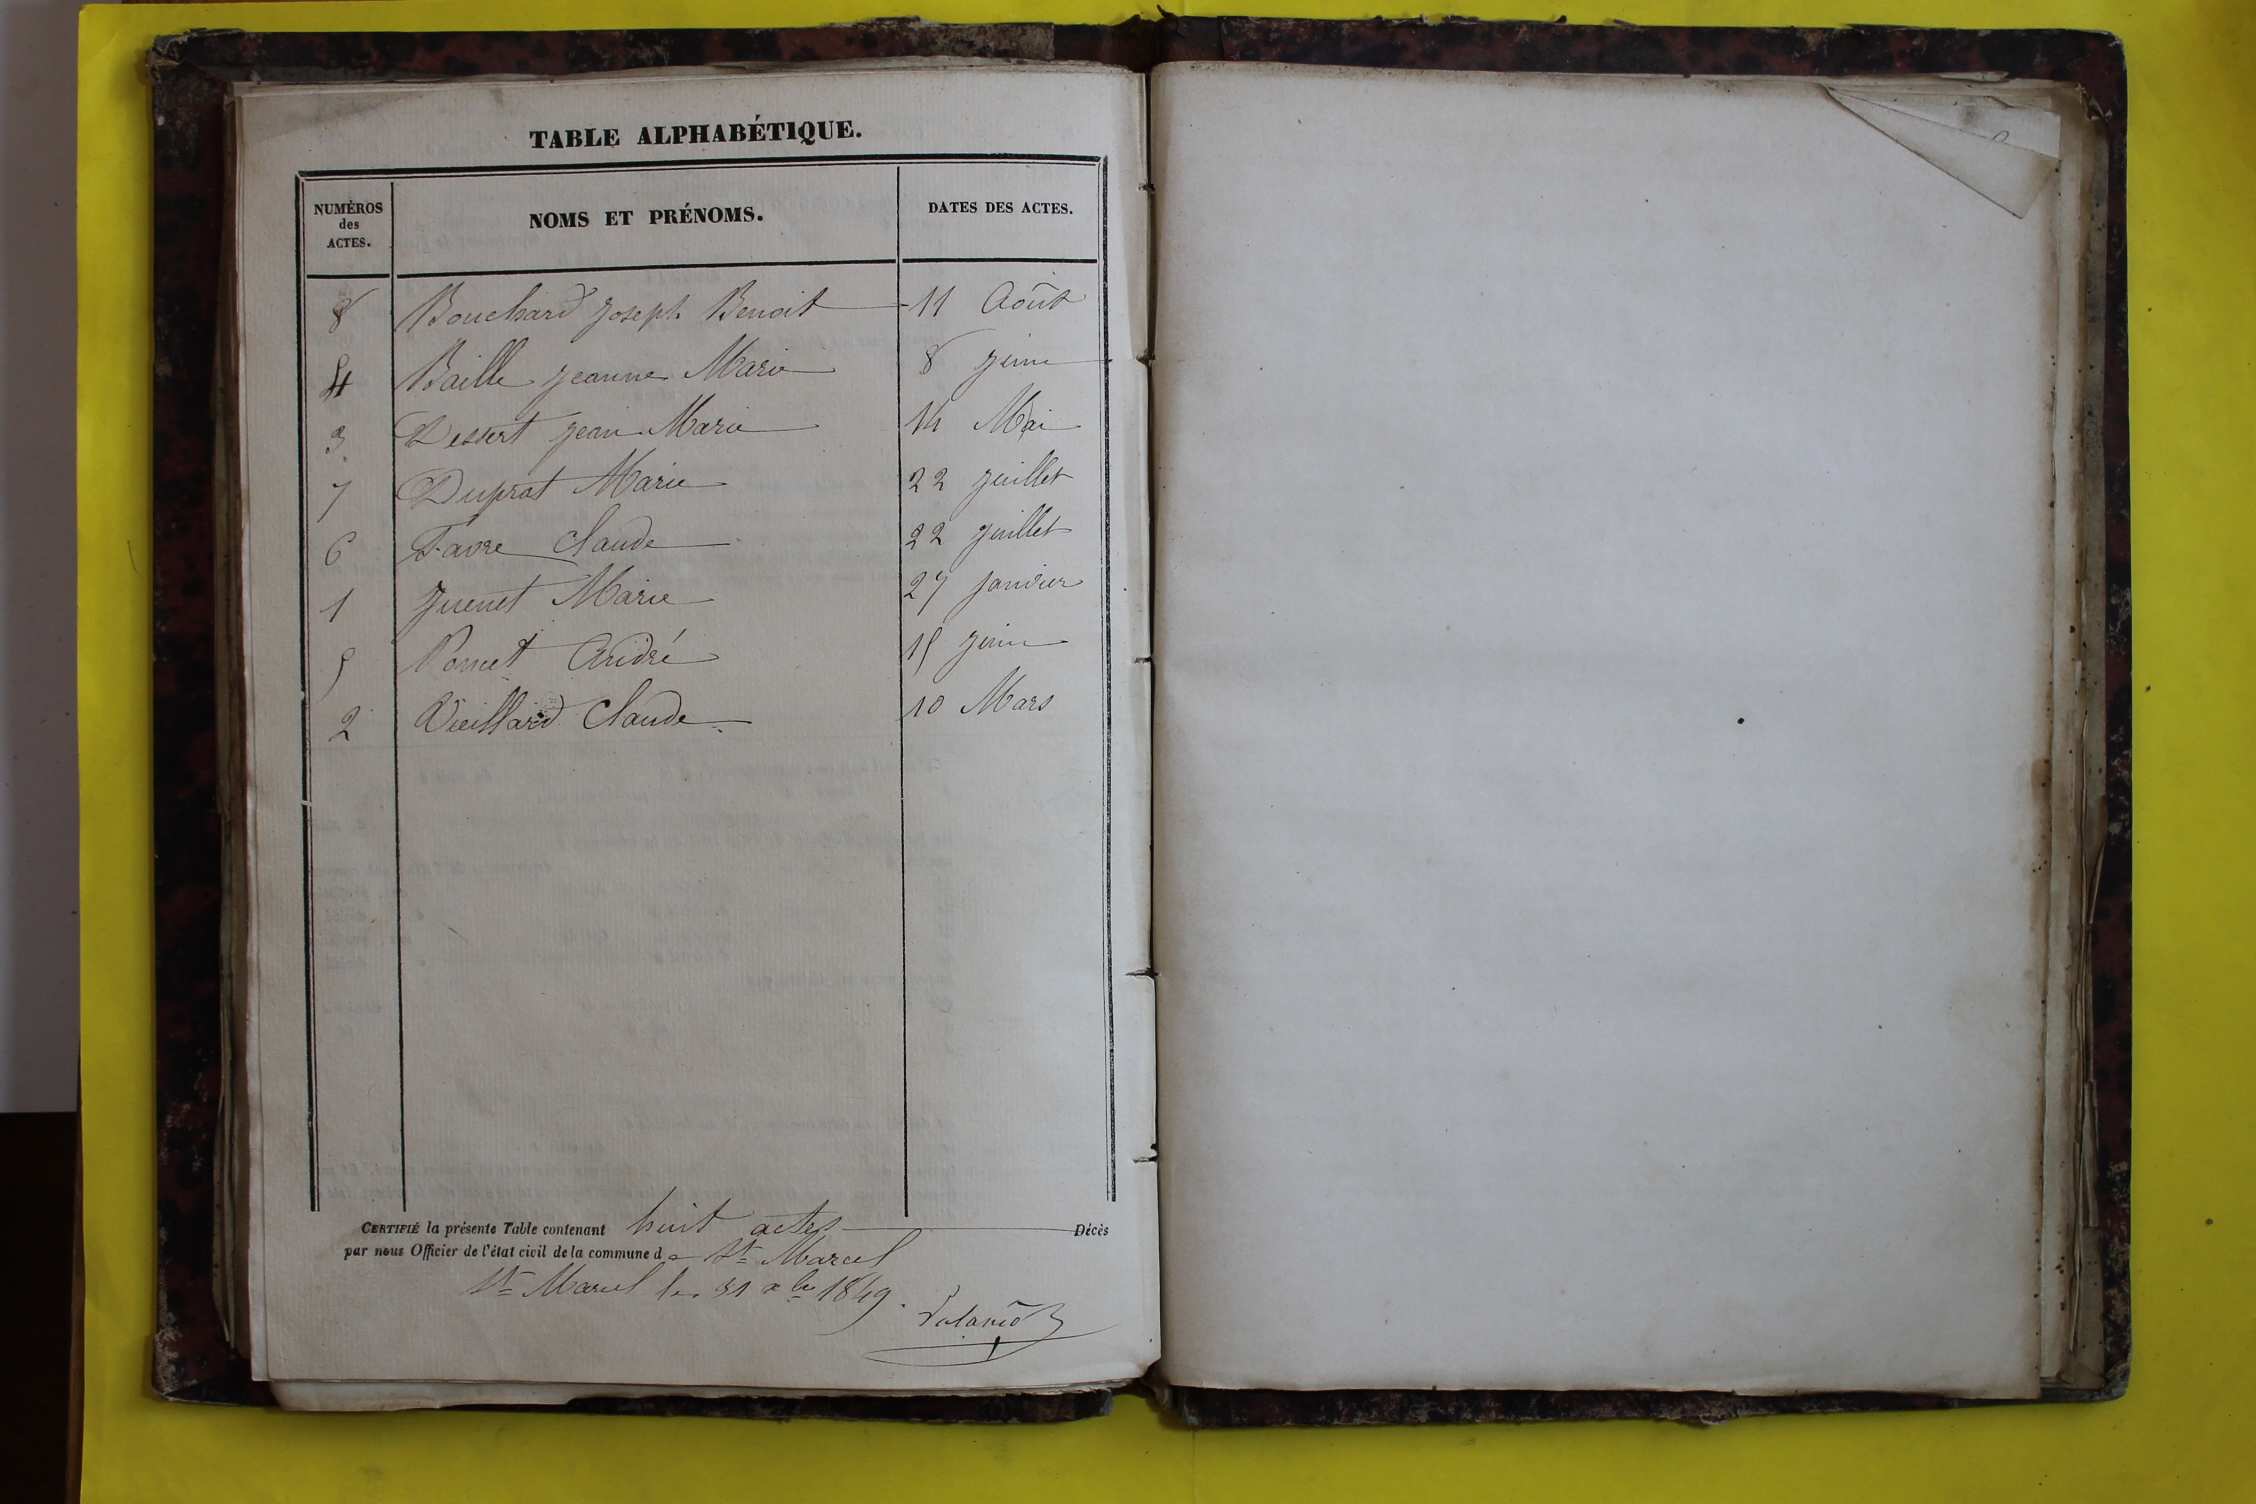 TABLE ALPHABÉTIQUE.
NUMÉROS des ACTES. NOMS ET PRÉNOMS. DATES DES ACTES.
8 Bouchard Joseph Benoit 11 Août
4 Baille Jeanne Marie 8 Juin
3 Dessert Jean Marie 14 Mai
7 Duprat Marie 22 Juillet
6 Favre Claude 22 Juillet
1 Juenet Marie 27 Janvier
5 Poncet André 15 Juin
2 Vieillard Claude 10 Mars
CERTIFIÉ la présente Table contenant huit actes Décès
par nous Officier de l'état civil de la commune de St Marcel
St Marcel le 31 xbre 1849.